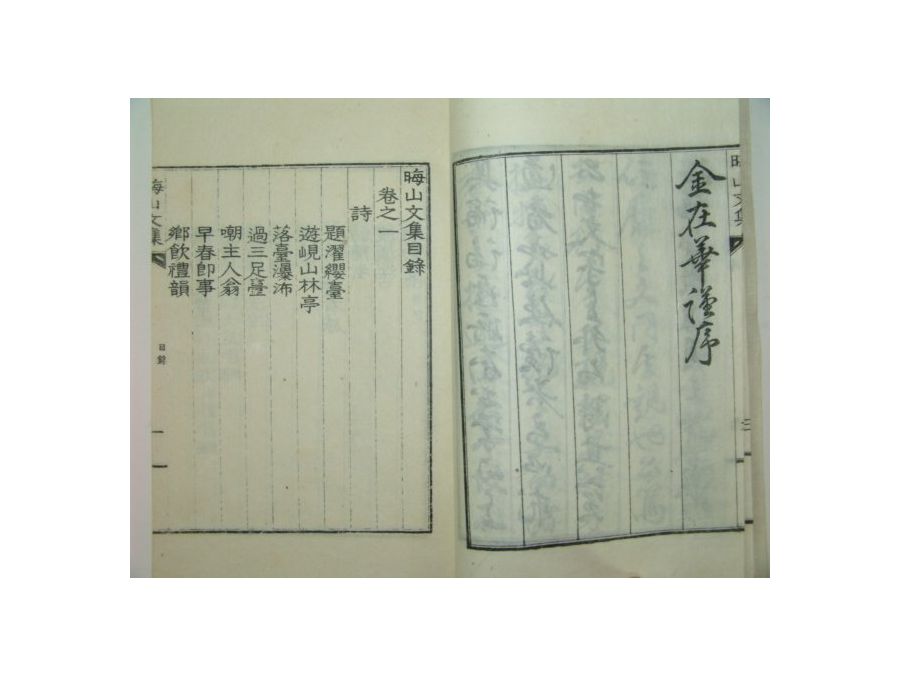 金在華謹序
晦山文集
晦山文集目錄
卷之一
詩
題濯纓臺
遊峴山林亭
落臺瀑沛
過三足臺
嘲主人翁
早春卽事
鄉飮禮韻
晦山文集
目錄
一